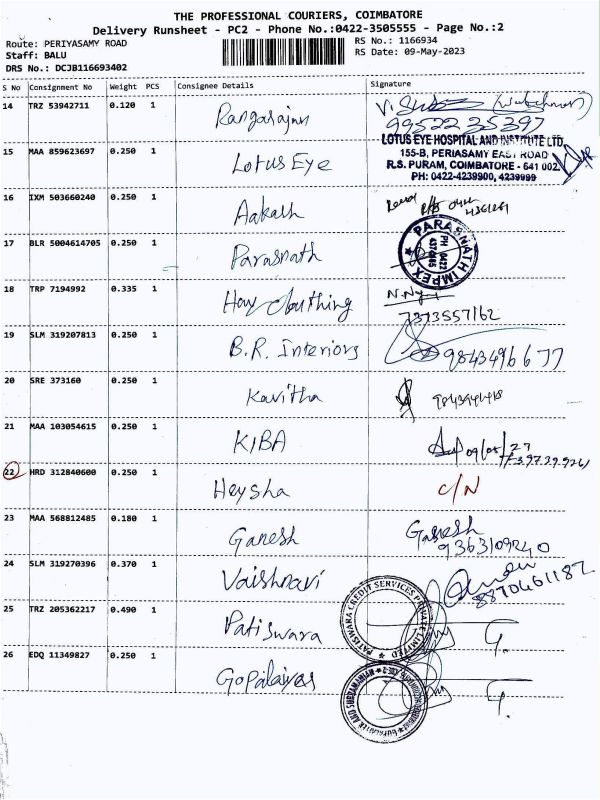 THE PROFESSIONAL COURIERS, COIMBATORE
Delivery Runsheet - PC2 - Phone No.:0422-3505555 - Page No.:2
Route: PERIYASAMY ROAD
RS No.: 1166934
Staff: BALU
RS Date: 09-May-2023
DRS No.: DCJB116693402
S No Consignment No Weight PCS Consignee Details Signature
14 TRZ 53942711 0.120 1 Rangarajan
9952235397
15 MAA 859623697 0.250 1 Lotus Eye
LOTUS EYE HOSPITAL AND INSTITUTE LTD
155-B, PERIASAMY EAST ROAD
R.S. PURAM, COIMBATORE - 641 002
PH: 0422-4239900, 4239999
16 IXM 503660240 0.250 1 Aakash
17 BLR 5004614705 0.250 1 Parasnath
PARASNATH IMPEX
PH 0422
18 TRP 7194992 0.335 1
7373557162
19 SLM 319207813 0.250 1 B.R. Interiors
9843496677
20 SRE 373160 0.250 1 Kavitha
21 MAA 103054615 0.250 1 KIBA
22 HRD 312840600 0.250 1 Heysha C/N
23 MAA 568812485 0.180 1 Ganesh Ganesh
9363109240
24 SLM 319270396 0.370 1 Vaishnavi
8870461182
25 TRZ 205362217 0.490 1 Patiswara
PATISWARA CREDIT SERVICES PRIVATE LIMITED
G.
26 EDQ 11349827 0.250 1 Gopalaiyer
G.